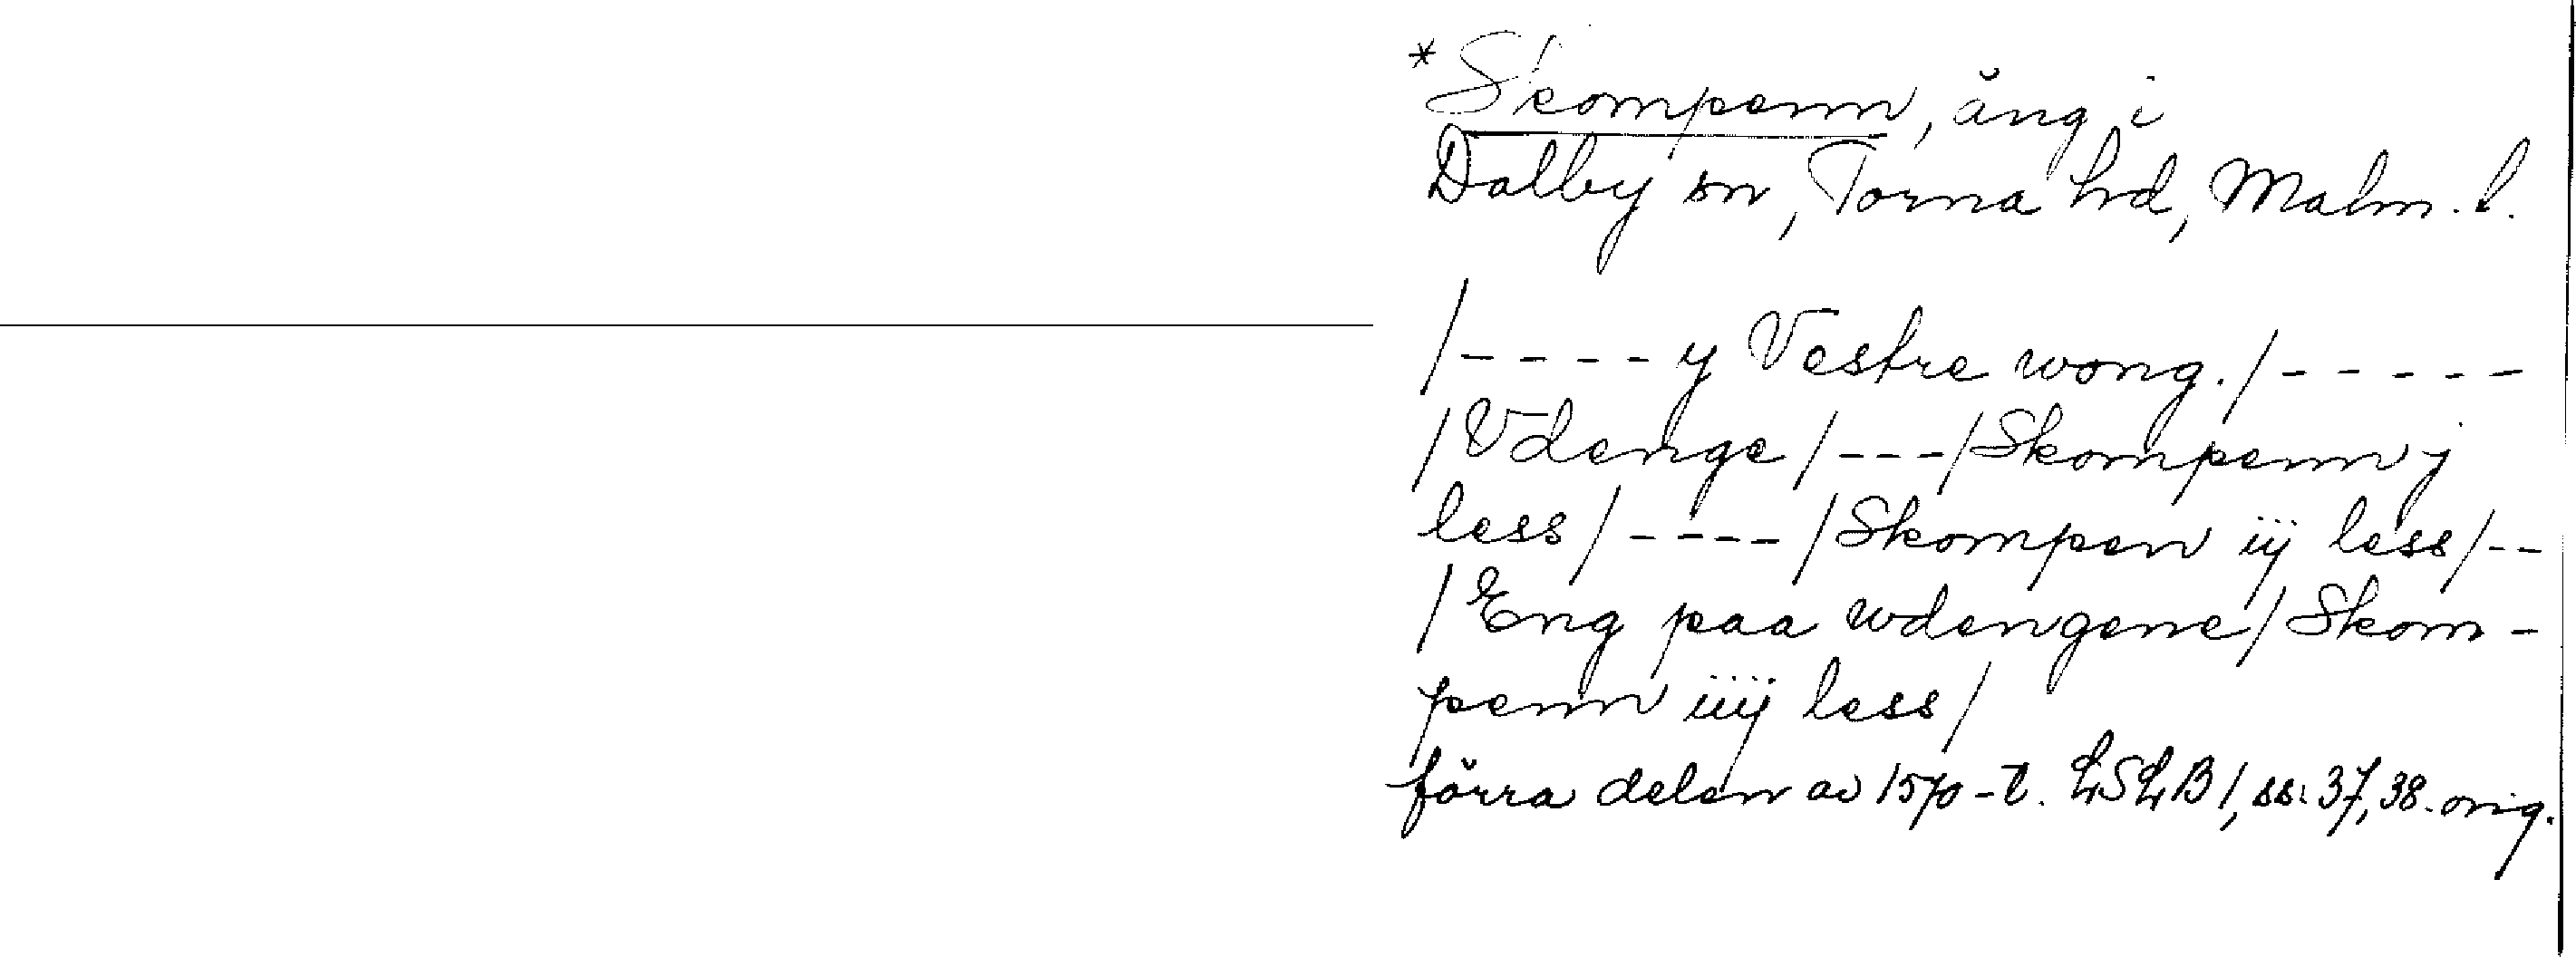 * Skompenn, äng i
Dalby sn, Torna hd, Malm. l.
/ - - - - y Vestre wong. / - - - - -
/ Vdenge / - - - / Skompenn j
less / - - - - / Skompen iij less / - -
/ Eng paa wdengene / Skom-
penn iiij less /
förra delen av 1570-t. LSLB 1, ss. 37, 38. orig.